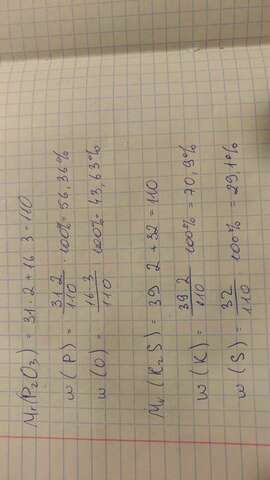 Mr(P₂O₃) = 31·2+16 3=110
w(P) = 31 2/110 · 100% = 56,36%
w(O) = 16·3/110 100% = 43,63%
Mr(K₂S) = 39 2+32=110
w(K) = 39 2/110 100% = 70,9%
w(S) = 32/110 100% = 29,1%